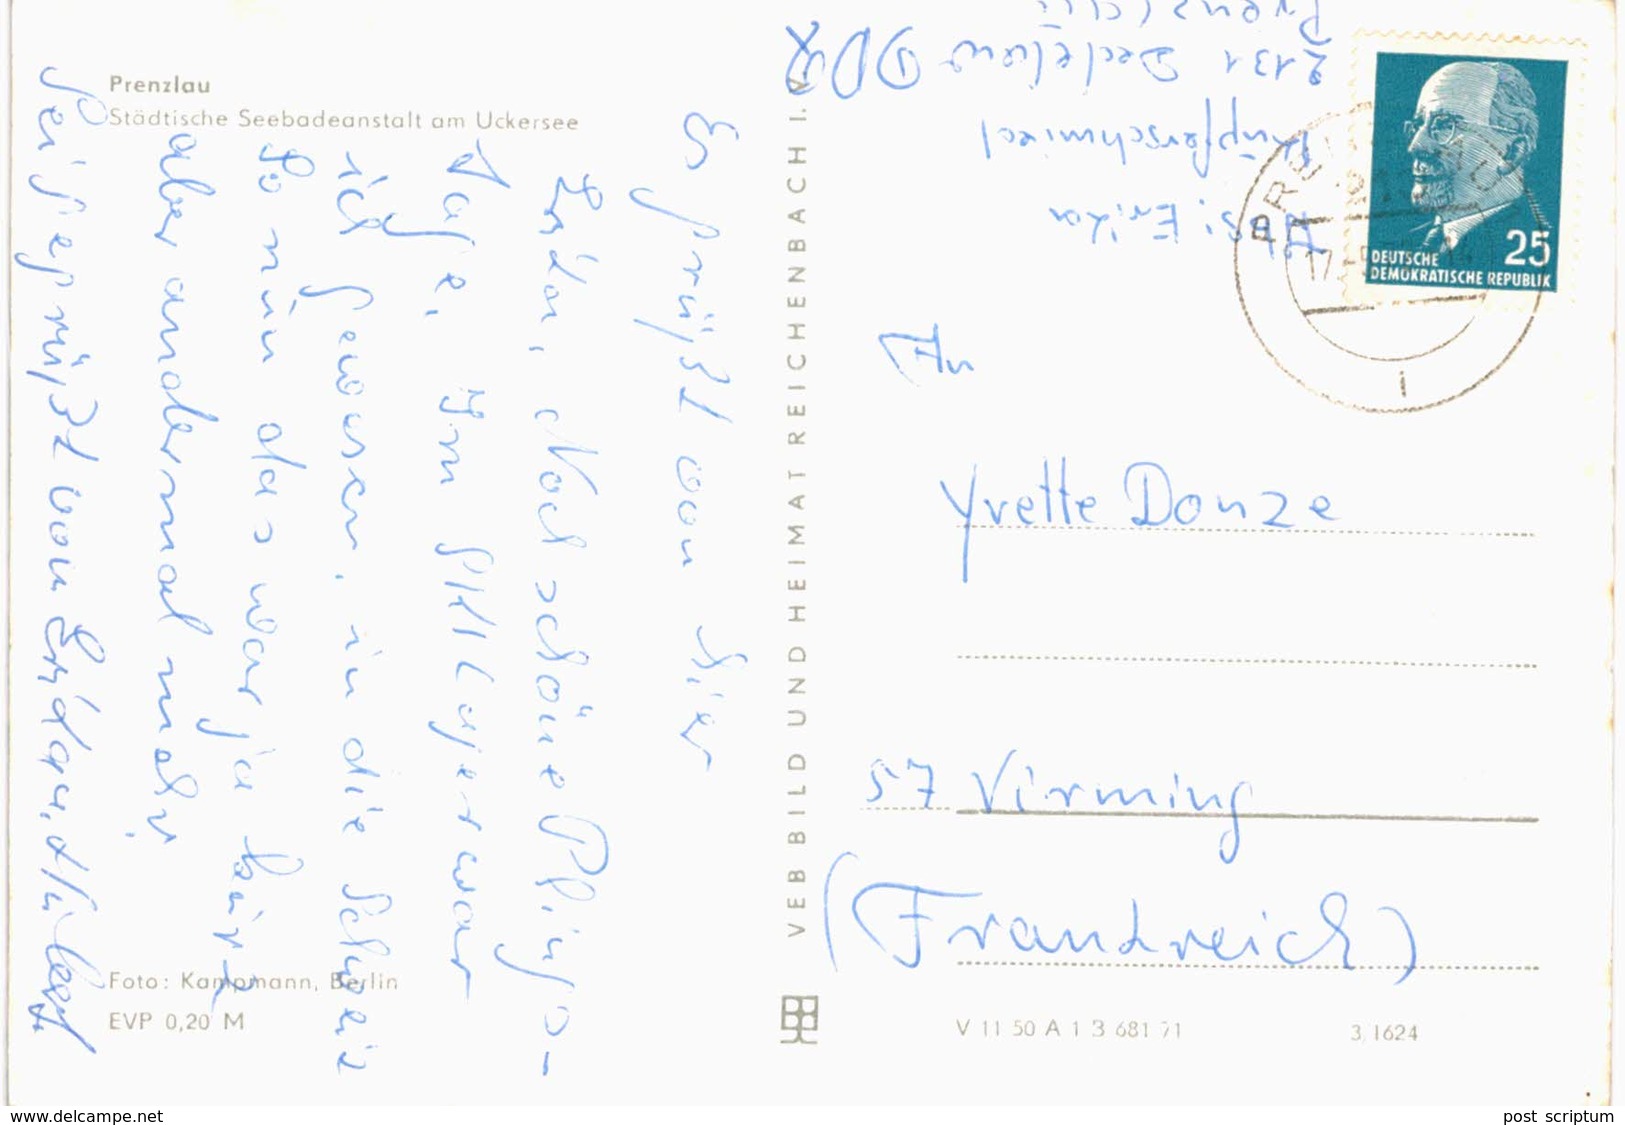 Prenzlau
Städtische Seebadeanstalt am Uckersee
Es grüßt von hier
Erika. Noch schöne Pfingst-
Tage, Im
ich gewesen. in die Schweiz
So nun das war ja kurz
aber andermal mehr
Sei gegrüßt von Erika
Foto: Kampmann, Berlin
EVP 0,20 M
VEB BILD UND HEIMAT REICHENBACH I. V.
Abs: Erika
Kupferschmied
2131 Dedelow DDR
Prenzlau
PRENZLAU
17
25
DEUTSCHE
DEMOKRATISCHE REPUBLIK
i
An
Yvette Donze
57 Virming
(Frankreich)
V 11 50 A 1 B 681 71
3, 1624
www.delcampe.net
post scriptum